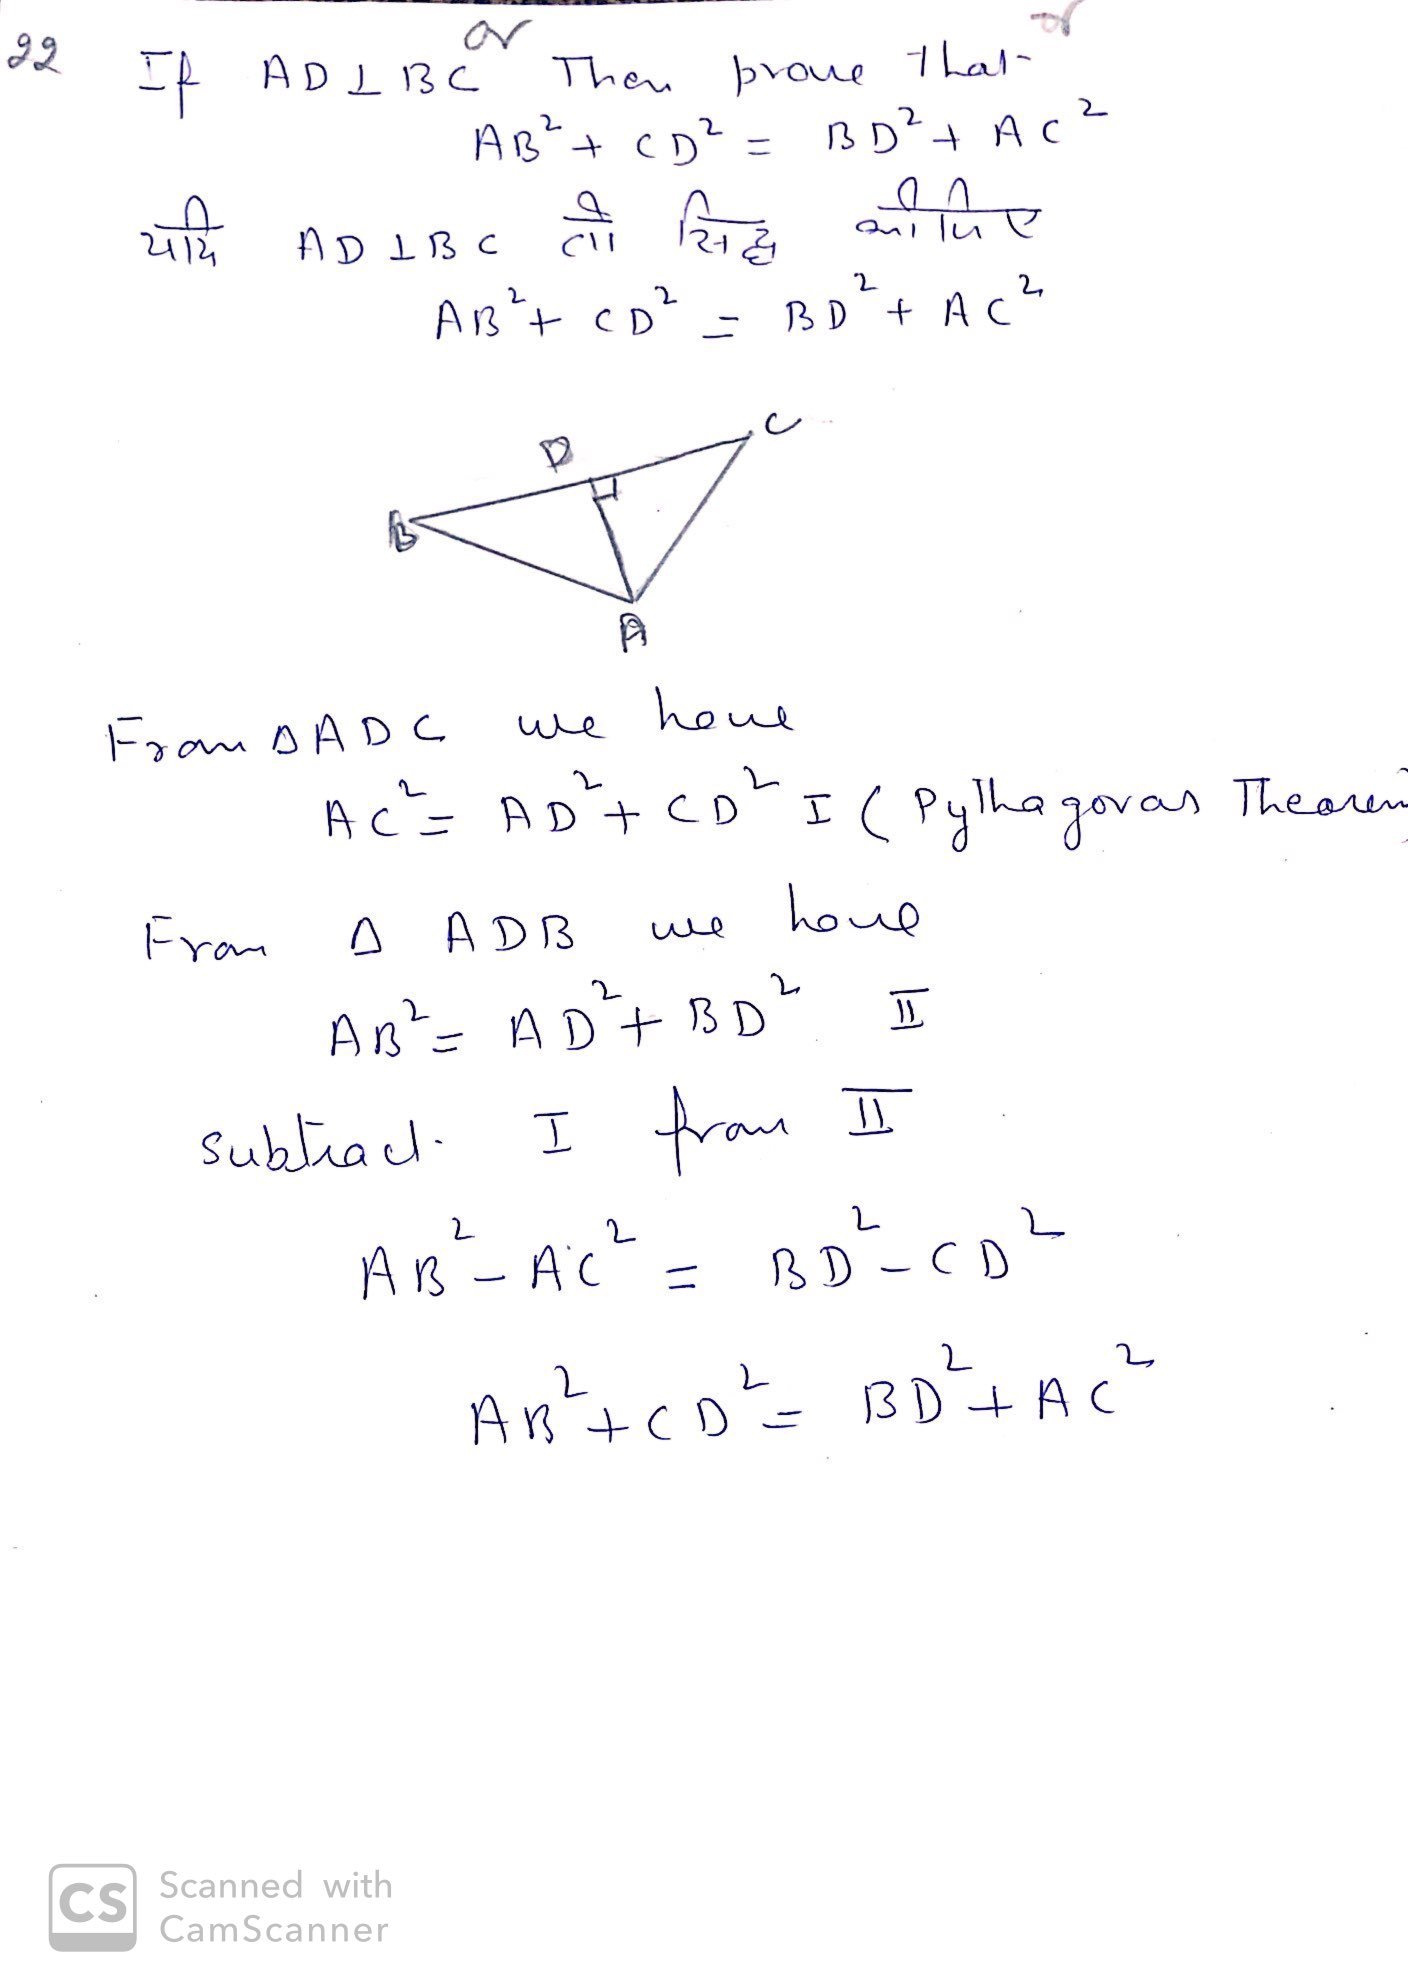 or or
22 If AD ⊥ BC Then prove that
AB² + CD² = BD² + AC²
यदि AD ⊥ BC तो सिद्ध कीजिए
AB² + CD² = BD² + AC²
D C
B
A
From Δ ADC we have
AC² = AD² + CD² I ( Pythagoras Theorem)
From Δ ADB we have
AB² = AD² + BD² II
subtract I from II
AB² - AC² = BD² - CD²
AB² + CD² = BD² + AC²
CS Scanned with
CamScanner